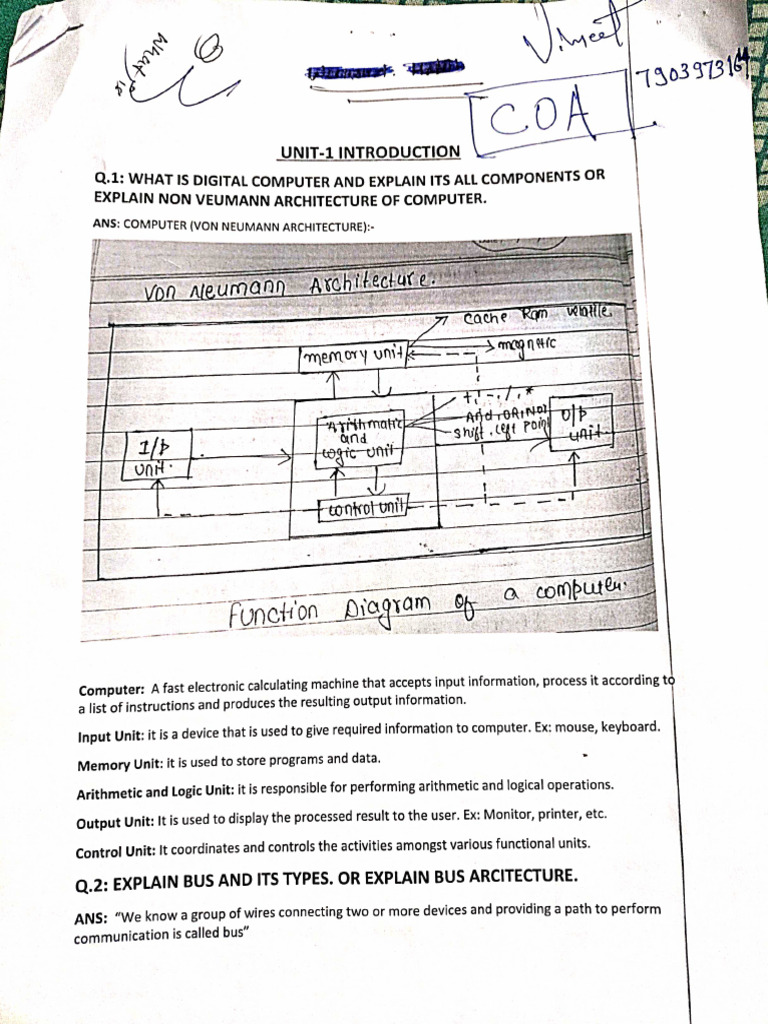 What is
Vineet
COA
UNIT-1 INTRODUCTION
Q.1: WHAT IS DIGITAL COMPUTER AND EXPLAIN ITS ALL COMPONENTS OR
EXPLAIN NON VEUMANN ARCHITECTURE OF COMPUTER.
ANS: COMPUTER (VON NEUMANN ARCHITECTURE):-
Von Neumann Architecture.
cache Ram
memory unit
magnetic
+, -, /, *
Arithmatic
and
logic unit
And, OR, NOT
shift, left point
I/p
unit.
O/p
unit
control unit
Function Diagram of a computer.
Computer: A fast electronic calculating machine that accepts input information, process it according to
a list of instructions and produces the resulting output information.
Input Unit: it is a device that is used to give required information to computer. Ex: mouse, keyboard.
Memory Unit: it is used to store programs and data.
Arithmetic and Logic Unit: it is responsible for performing arithmetic and logical operations.
Output Unit: It is used to display the processed result to the user. Ex: Monitor, printer, etc.
Control Unit: It coordinates and controls the activities amongst various functional units.
Q.2: EXPLAIN BUS AND ITS TYPES. OR EXPLAIN BUS ARCITECTURE.
ANS: “We know a group of wires connecting two or more devices and providing a path to perform
communication is called bus”